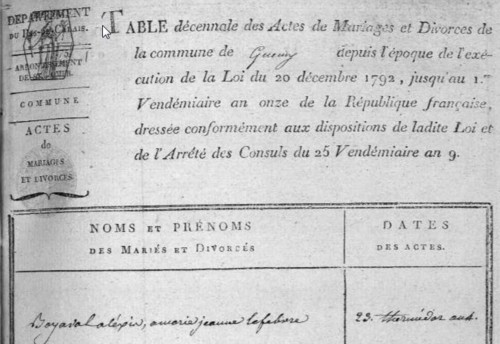 DÉPARTEMENT
DU PAS-DE-CALAIS.
ARRONDISSEMENT
COMMUNE
ACTES
de
MARIAGES
ET DIVORCES.
TABLE décennale des Actes de Mariages et Divorces de
la commune de depuis l'époque de l'exé-
cution de la Loi du 20 décembre 1792, jusqu'au 1.er
Vendémiaire an onze de la République française,
dressée conformément aux dispositions de ladite Loi et
de l'Arrêté des Consuls du 25 Vendémiaire an 9.
NOMS ET PRÉNOMS
DES MARIÉS ET DIVORCÉS
DATES
DES ACTES.
Boyaval alexis, a marie jeanne lefebvre
23. thermidor